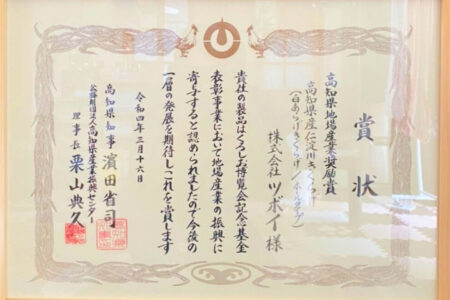 賞状
高知県地場産業奨励賞
高知県産仁淀川きくらげ
株式会社ツボイ様
貴社の製品はくろしお博覧会記念基金
表彰事業において地場産業の振興に
寄与すると認められましたので今後の
一層の発展を期待しこれを賞します
令和四年三月十六日
高知県知事 濵田省司
公益財団法人高知県産業振興センター
理事長 栗山典久